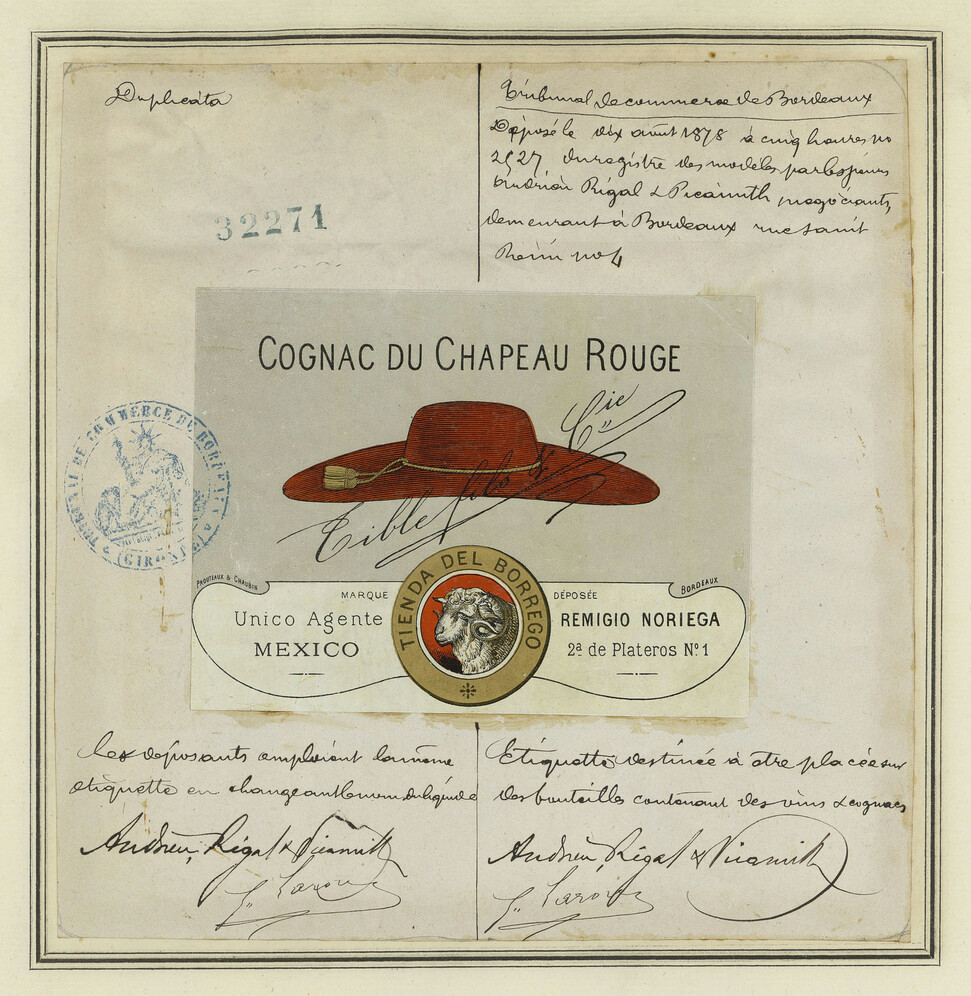 Duplicata
32271
Tribunal de commerce de Bordeaux
Déposé le dix août 1878 à cinq heures no
2527 du registre des modèles par les sieurs
Andrieu Rigal & Picamilh négociants,
demeurant à Bordeaux rue saint
Rémi no 4
COGNAC DU CHAPEAU ROUGE
Tible fils & Cie
TRIBUNAL DE COMMERCE DE BORDEAUX
(GIRONDE)
PROUTEAUX & CHAUBIN
BORDEAUX
MARQUE DÉPOSÉE
TIENDA DEL BORREGO
Unico Agente
MEXICO
REMIGIO NORIEGA
2ª de Plateros Nº 1
Les déposants emploient la même
étiquette en changeant le nom du liquide
Andrieu, Rigal & Picamilh
Etiquette destinée à être placée sur
des bouteilles contenant des vins & cognacs
Andrieu Rigal & Picamilh